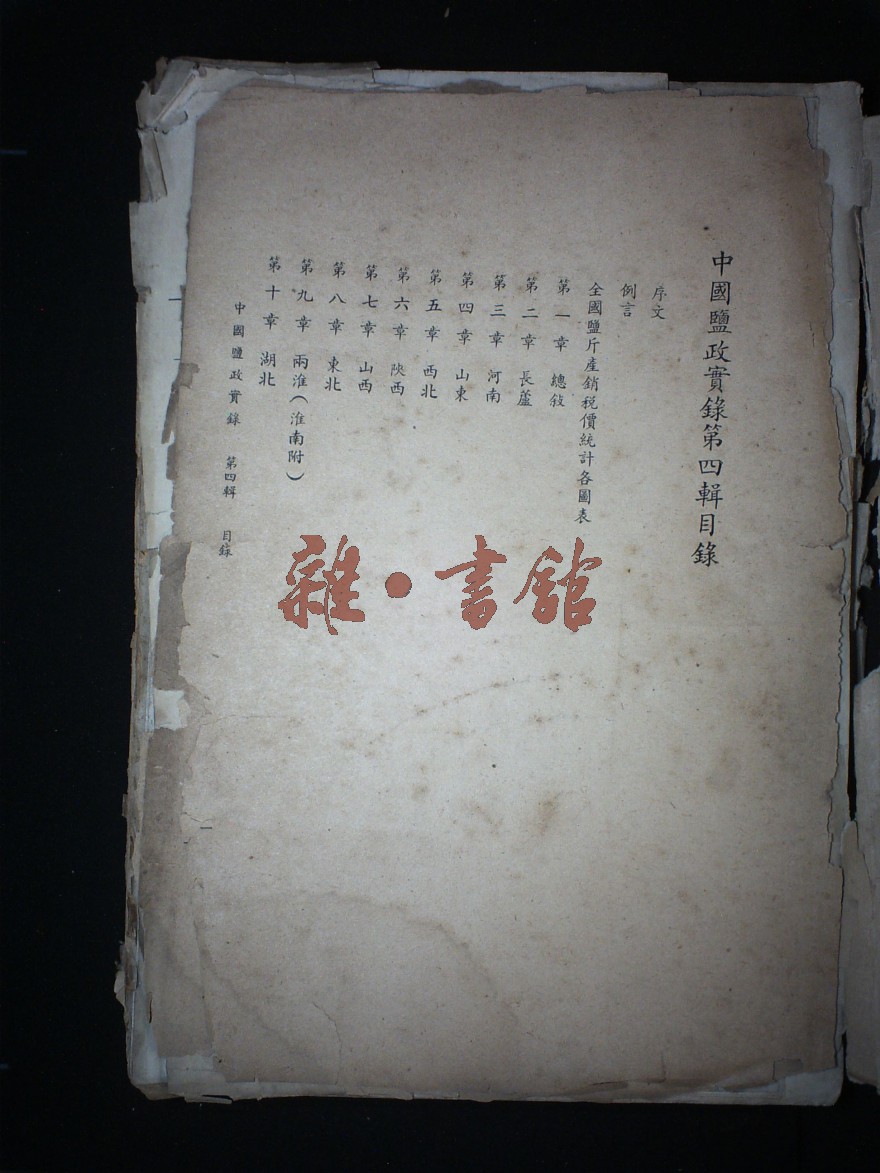 中國鹽政實錄第四輯目錄
序文
例言
全國鹽斤產銷稅價統計各圖表
第一章 總敍
第二章 長蘆
第三章 河南
第四章 山東
第五章 西北
第六章 陝西
第七章 山西
第八章 東北
第九章 兩淮(淮南附)
第十章 湖北
中國鹽政實錄 第四輯 目錄
一
雜·書館